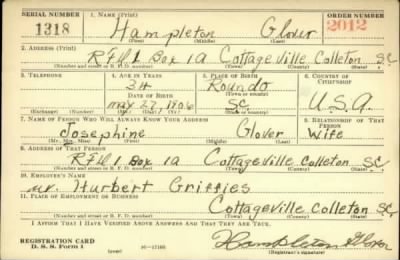 SERIAL NUMBER 1. NAME (Print) ORDER NUMBER
1318 Hampleton Glover 2012
(First) (Middle) (Last)
2. ADDRESS (Print)
RFD 1 Box 1A Cottageville Colleton SC
(Number and street or R. F. D. number) (Town) (County) (State)
3. TELEPHONE 4. AGE IN YEARS 5. PLACE OF BIRTH 6. COUNTRY OF CITIZENSHIP
34 Roundo
DATE OF BIRTH (Town or county)
May 27 1906 SC. U.S.A.
(Exchange) (Number) (Mo.) (Day) (Yr.) (State or country)
7. NAME OF PERSON WHO WILL ALWAYS KNOW YOUR ADDRESS 8. RELATIONSHIP OF THAT PERSON
Josephine Glover Wife
(Mr., Mrs., Miss) (First) (Middle) (Last)
9. ADDRESS OF THAT PERSON
RFD 1 Box 1A Cottageville Colleton SC.
(Number and street or R. F. D. number) (Town) (County) (State)
10. EMPLOYER'S NAME
Mr. Hurbert Griffies
11. PLACE OF EMPLOYMENT OR BUSINESS
Cottageville Colleton SC.
(Number and street or R. F. D. number) (Town) (County) (State)
I AFFIRM THAT I HAVE VERIFIED ABOVE ANSWERS AND THAT THEY ARE TRUE.
REGISTRATION CARD
D. S. S. Form 1 (over) 16—17105 Hampleton Glover
(Registrant's signature)